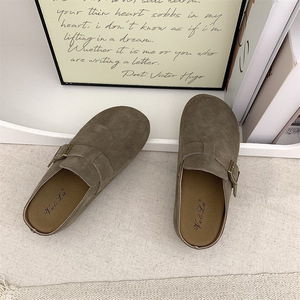 your thin heart sobbs in my
heart, i don't know if i'm
lifting in a dream.
Whether it is me or you who
are writing a letter.
Poet Victor Hugo